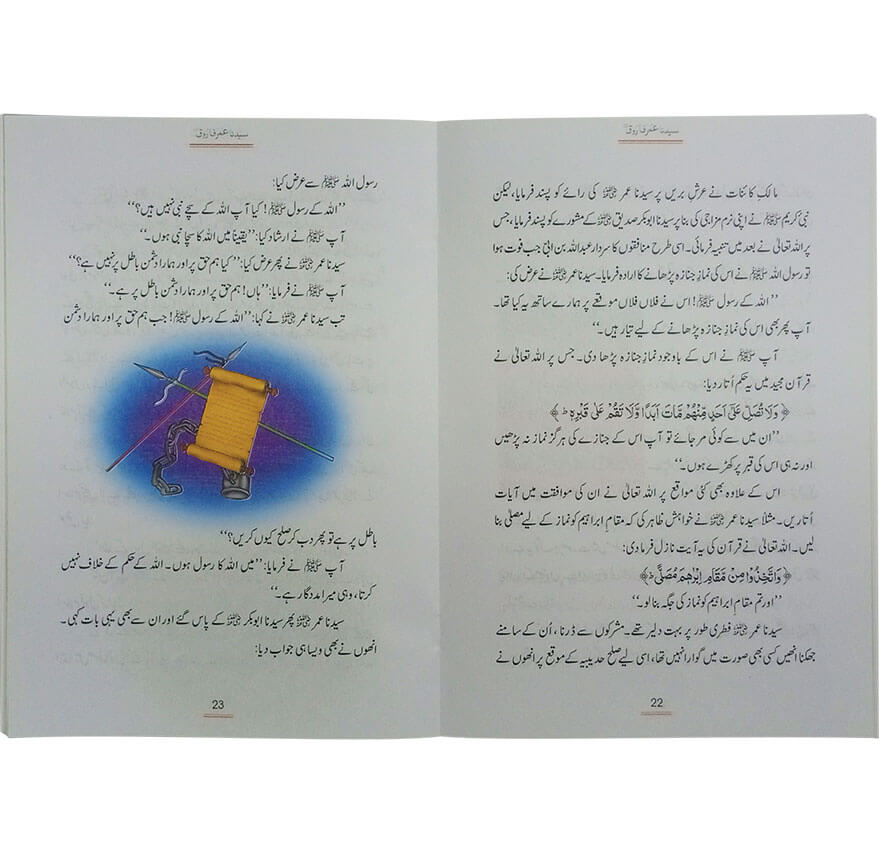 سیدنا عمر فاروق
مالکِ کائنات نے عرش بریں پر سیدنا عمر رضی اللہ عنہ کی رائے کو پسند فرمایا، لیکن
نبی کریم ﷺ نے اپنی نرم مزاجی کی بنا پر سیدنا ابوبکر صدیق رضی اللہ عنہ کے مشورے کو پسند فرمایا، جس
پر اللہ تعالیٰ نے بعد میں تنبیہ فرمائی۔ اسی طرح منافقوں کا سردار عبداللہ بن ابی جب فوت ہوا
تو رسول اللہ ﷺ نے اس کی نمازِ جنازہ پڑھانے کا ارادہ فرمایا۔ سیدنا عمر رضی اللہ عنہ نے عرض کی:
’’اللہ کے رسول ﷺ! اس نے فلاں فلاں موقعے پر ہمارے ساتھ یہ کیا تھا۔
آپ پھر بھی اس کی نمازِ جنازہ پڑھانے کے لیے تیار ہیں۔‘‘
آپ ﷺ نے اس کے باوجود نمازِ جنازہ پڑھا دی۔ جس پر اللہ تعالیٰ نے
قرآن مجید میں یہ حکم اُتار دیا:
﴿وَلَا تُصَلِّ عَلٰٓى اَحَدٍ مِّنْهُمْ مَّاتَ اَبَدًا وَّلَا تَقُمْ عَلٰى قَبْرِهٖ ط﴾
’’ان میں سے کوئی مر جائے تو آپ اس کے جنازے کی ہرگز نماز نہ پڑھیں
اور نہ ہی اس کی قبر پر کھڑے ہوں۔‘‘
اس کے علاوہ بھی کئی مواقع پر اللہ تعالیٰ نے ان کی موافقت میں آیات
اُتاریں۔ مثلاً سیدنا عمر رضی اللہ عنہ نے خواہش ظاہر کی کہ مقامِ ابراہیم کو نماز کے لیے مصلّی بنا
لیں۔ اللہ تعالیٰ نے قرآن کی یہ آیت نازل فرما دی:
﴿وَاتَّخِذُوْا مِنْ مَّقَامِ اِبْرٰهٖمَ مُصَلًّى ط﴾
’’اور تم مقامِ ابراہیم کو نماز کی جگہ بنا لو۔‘‘
سیدنا عمر رضی اللہ عنہ فطری طور پر بہت دلیر تھے۔ مشرکوں سے ڈرنا، اُن کے سامنے
جھکنا انھیں کسی بھی صورت میں گوارا نہیں تھا، اسی لیے صلح حدیبیہ کے موقع پر انھوں نے
22
سیدنا عمر فاروق
رسول اللہ ﷺ سے عرض کیا:
’’اللہ کے رسول ﷺ! کیا آپ اللہ کے سچے نبی نہیں ہیں؟‘‘
آپ ﷺ نے ارشاد کیا: ’’یقیناً میں اللہ کا سچا نبی ہوں۔‘‘
سیدنا عمر رضی اللہ عنہ نے پھر عرض کیا: ’’کیا ہم حق پر اور ہمارا دشمن باطل پر نہیں ہے؟‘‘
آپ ﷺ نے فرمایا: ’’ہاں! ہم حق پر اور ہمارا دشمن باطل پر ہے۔‘‘
تب سیدنا عمر رضی اللہ عنہ نے کہا: ’’اللہ کے رسول ﷺ! جب ہم حق پر اور ہمارا دشمن
باطل پر ہے تو پھر دب کر صلح کیوں کریں؟‘‘
آپ ﷺ نے فرمایا: ’’میں اللہ کا رسول ہوں۔ اللہ کے حکم کے خلاف نہیں
کرتا، وہی میرا مددگار ہے۔‘‘
سیدنا عمر رضی اللہ عنہ پھر سیدنا ابوبکر رضی اللہ عنہ کے پاس گئے اور ان سے بھی یہی بات کہی۔
انھوں نے بھی ویسا ہی جواب دیا:
23